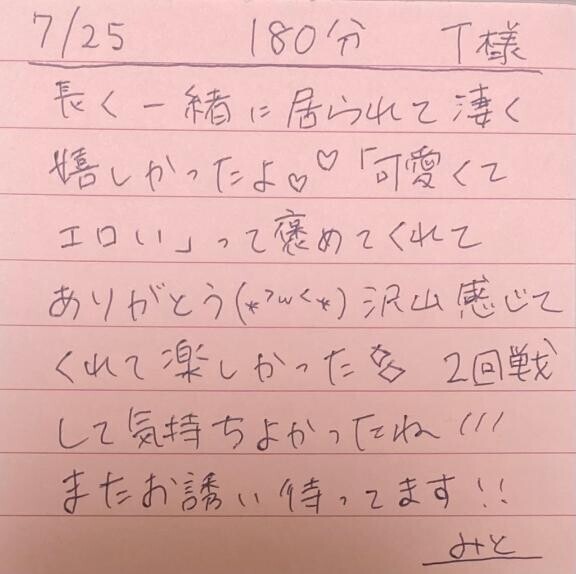 7/25 180分 T様
長く一緒に居られて凄く
嬉しかったよ♡♡「可愛くて
エロい」って褒めてくれて
ありがとう(*>ω<*)沢山感じて
くれて楽しかった 2回戦
して気持ちよかったね!!!
またお誘い待ってます!!
みと